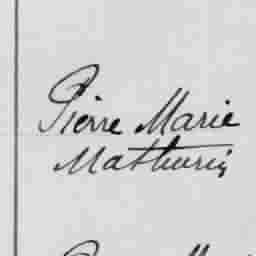 Pierre Marie
Mathurin